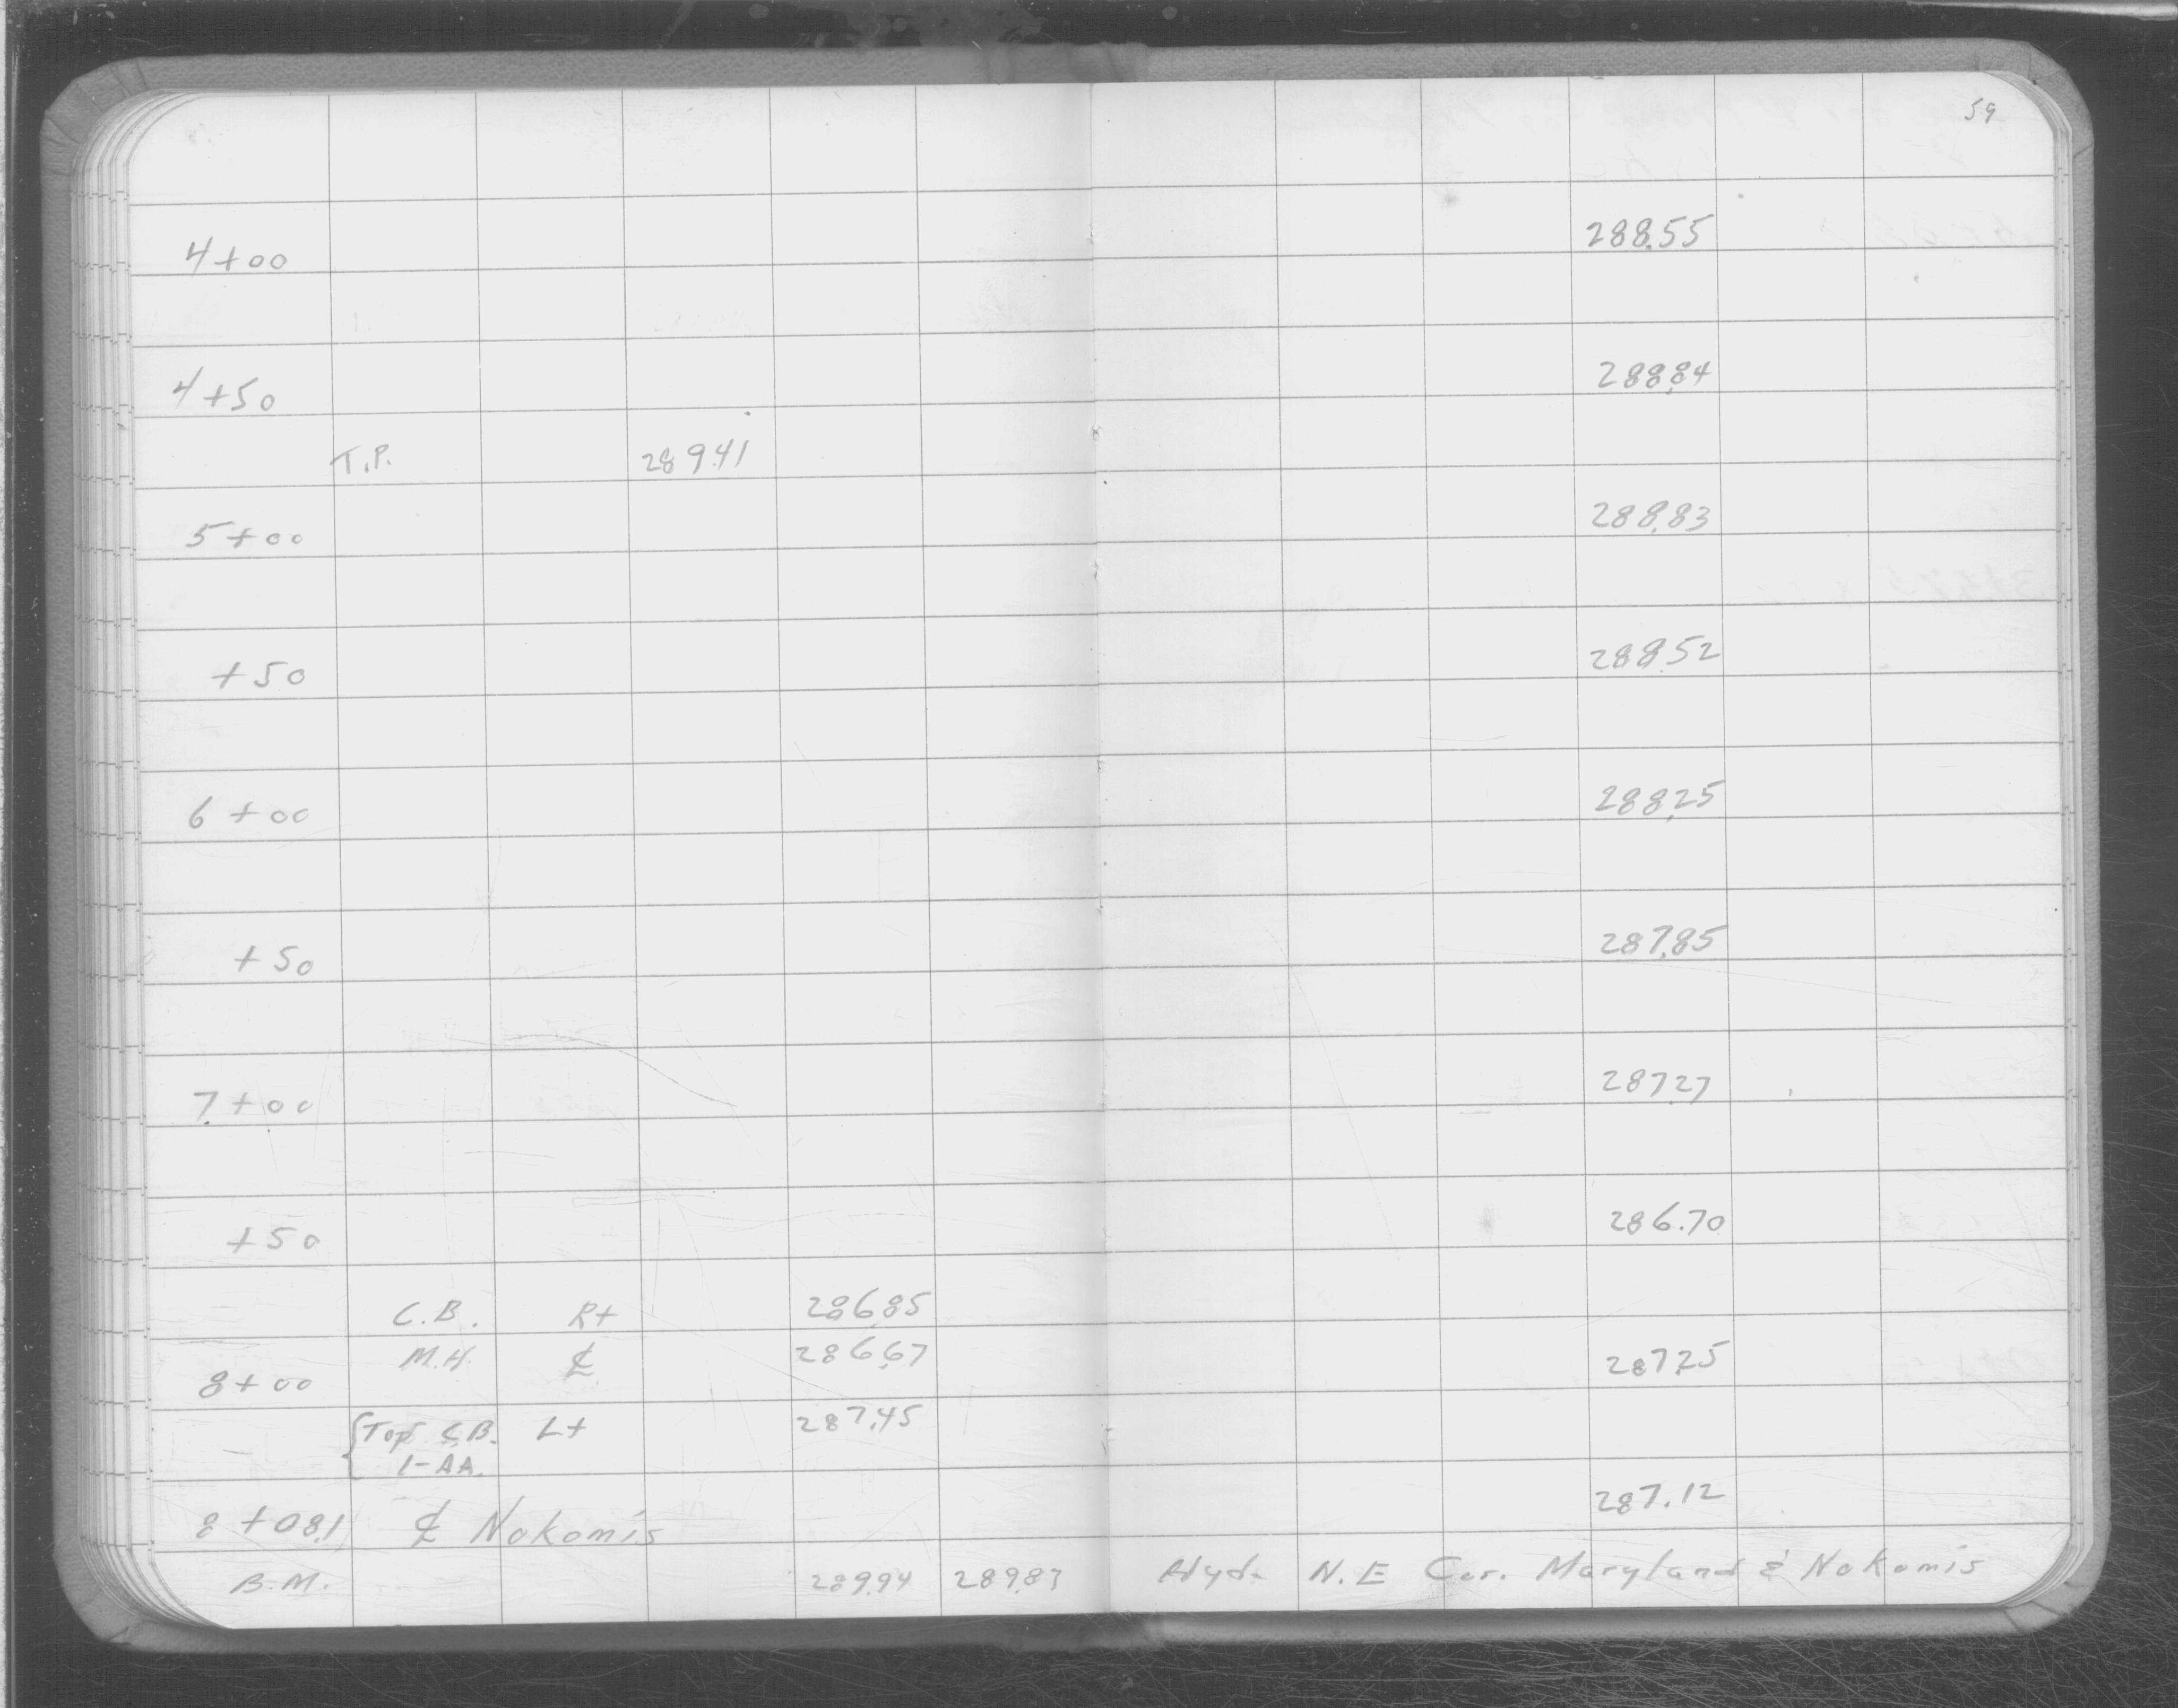 59
4+00 288.55
4+50 288.84
T.P. 289.41
5+00 288.83
+50 288.52
6+00 288.25
+50 287.85
7+00 287.27
+50 286.70
C.B. Rt 286.85
M.H. ℄ 286.67
8+00 287.25
{Top C.B. Lt 287.45
1-AA.
8+08.1 ℄ Nokomis 287.12
B.M. 289.94 289.87 Hyd. N.E Cor. Maryland & Nokomis